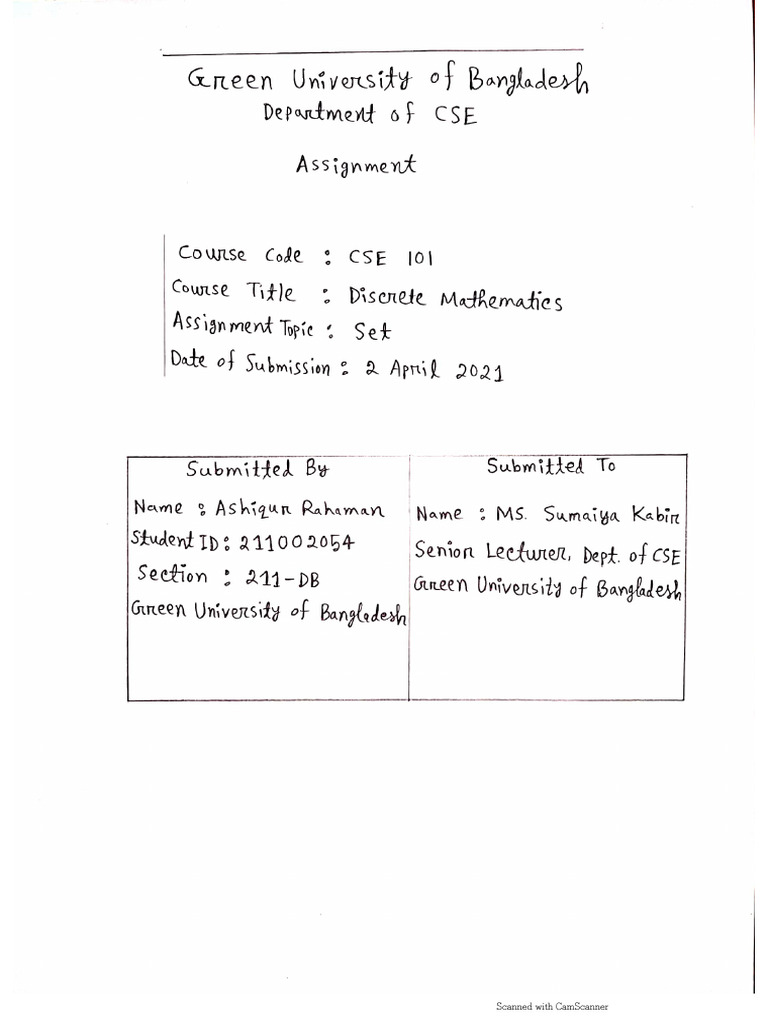 Green University of Bangladesh
Department of CSE
Assignment
Course Code : CSE 101
Course Title : Discrete Mathematics
Assignment Topic : Set
Date of Submission : 2 April 2021
Submitted By
Name : Ashiqur Rahaman
Student ID : 211002054
Section : 211-DB
Green University of Bangladesh
Submitted To
Name : MS. Sumaiya Kabir
Senior Lecturer, Dept. of CSE
Green University of Bangladesh
Scanned with CamScanner